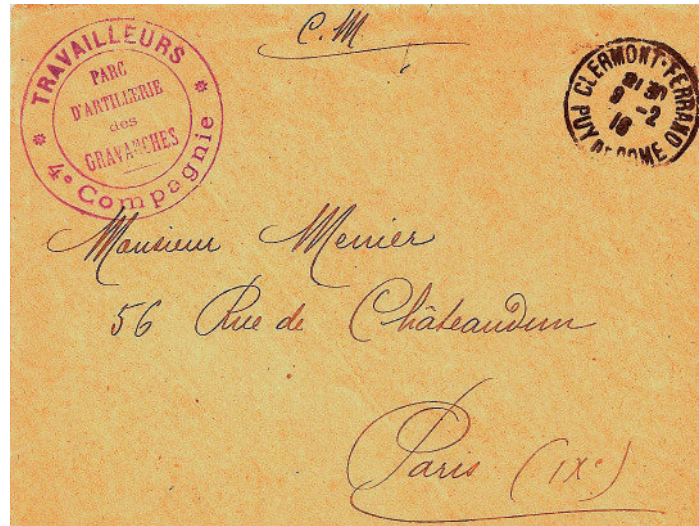 C.M
TRAVAILLEURS
PARC
D'ARTILLERIE
des
GRAVANCHES
* 4e Compagnie *
CLERMONT-FERRAND
21 30
9 -2
16
PUY DE DOME
Monsieur Menier
56 Rue de Châteaudun
Paris (IXe)